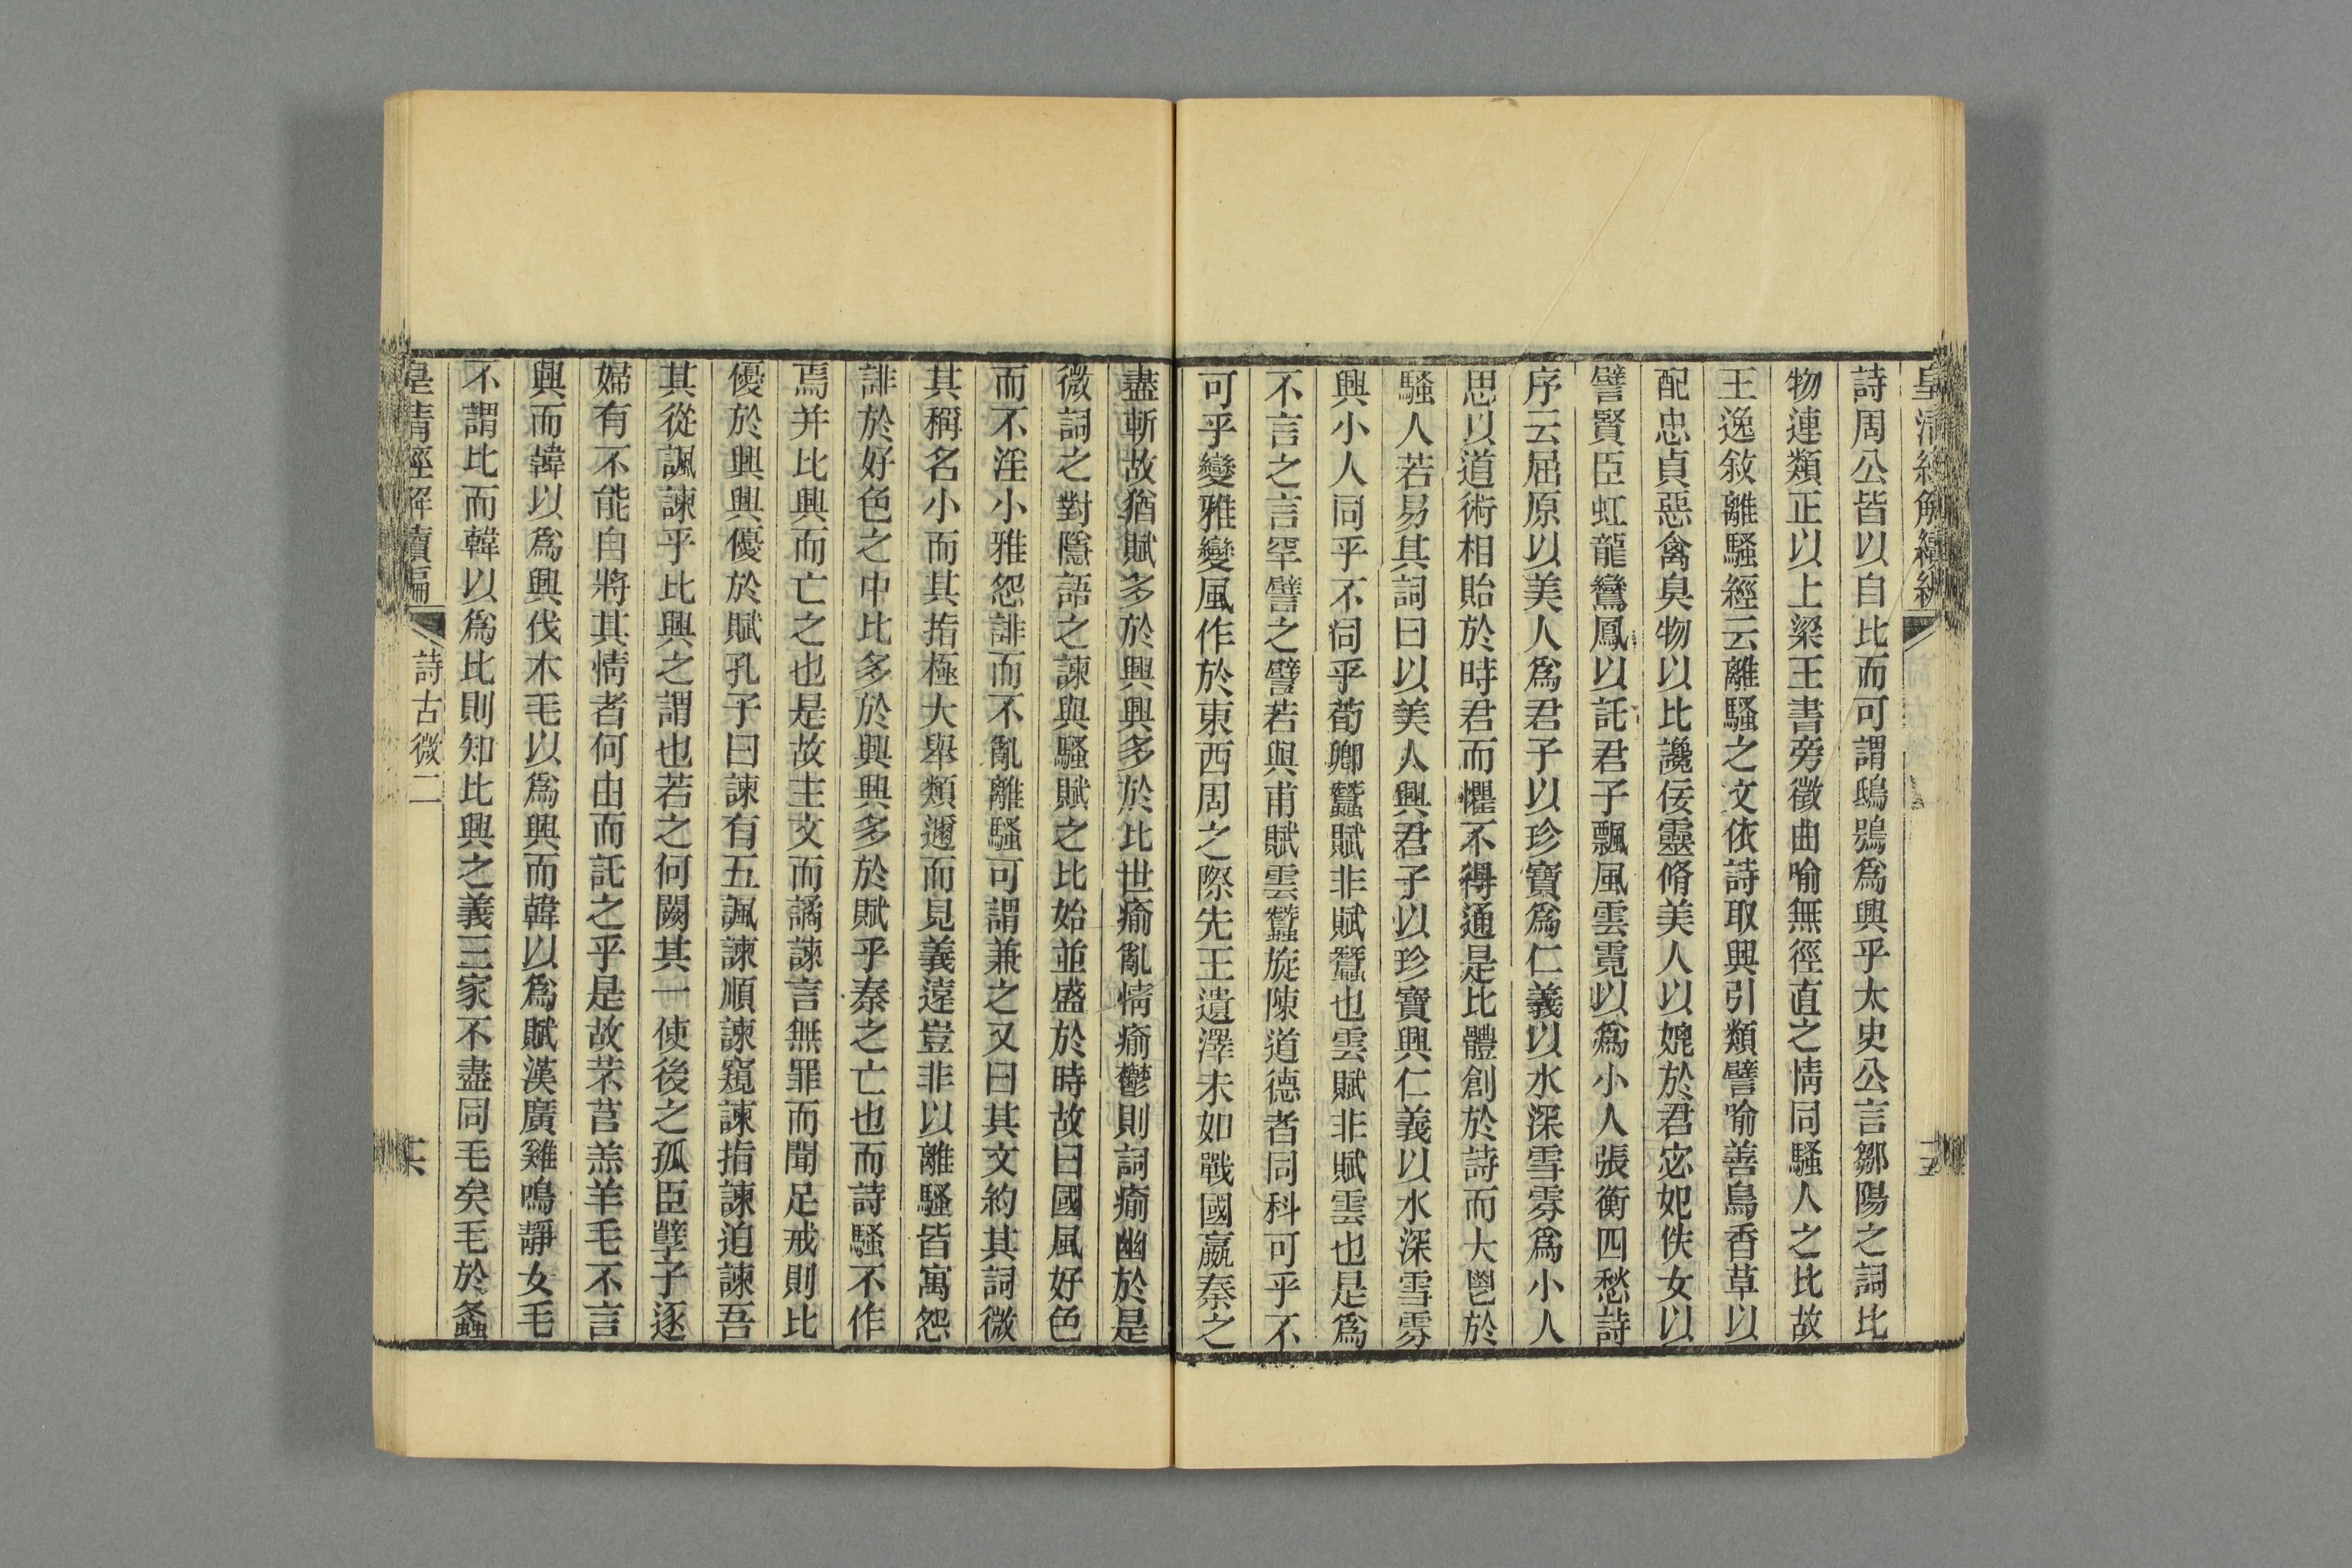 皇清經解續編
十五
詩周公皆以自比而可謂鴟鴞爲興乎太史公言鄒陽之詞比
物連類正以上梁王書旁徵曲喻無徑直之情同騷人之比故
王逸敘離騷經云離騷之文依詩取興引類譬喻善鳥香草以
配忠貞惡禽臭物以比讒佞靈脩美人以媲於君宓妃佚女以
譬賢臣虬龍鸞鳳以託君子飄風雲霓以爲小人張衡四愁詩
序云屈原以美人爲君子以珍寶爲仁義以水深雪雰爲小人
思以道術相貽於時君而懼不得通是比體創於詩而大鬯於
騷人若易其詞曰以美人興君子以珍寶興仁義以水深雪雰
興小人同乎不同乎荀卿蠶賦非賦蠶也雲賦非賦雲也是爲
不言之言罕譬之譬若與甫賦雲蠶旋陳道德者同科可乎不
可乎變雅變風作於東西周之際先王遺澤未如戰國嬴秦之
盡斬故猶賦多於興興多於比世瘉亂情瘉鬱則詞瘉幽於是
微詞之對隱語之諫與騷賦之比始並盛於時故曰國風好色
而不淫小雅怨誹而不亂離騷可謂兼之又曰其文約其詞微
其稱名小而其指極大舉類邇而見義遠豈非以離騷皆寓怨
誹於好色之中比多於興興多於賦乎秦之亡也而詩騷不作
焉并比興而亡之也是故主文而譎諫言無罪而聞足戒則比
優於興興優於賦孔子曰諫有五諷諫順諫窺諫指諫迫諫吾
其從諷諫乎比興之謂也若之何闕其一使後之孤臣孽子逐
婦有不能自將其情者何由而託之乎是故芣苢羔羊毛不言
興而韓以爲興伐木毛以爲興而韓以爲賦漢廣雞鳴靜女毛
不謂比而韓以爲比則知比興之義三家不盡同毛矣毛於螽
皇清經解續編
詩古微二
十六